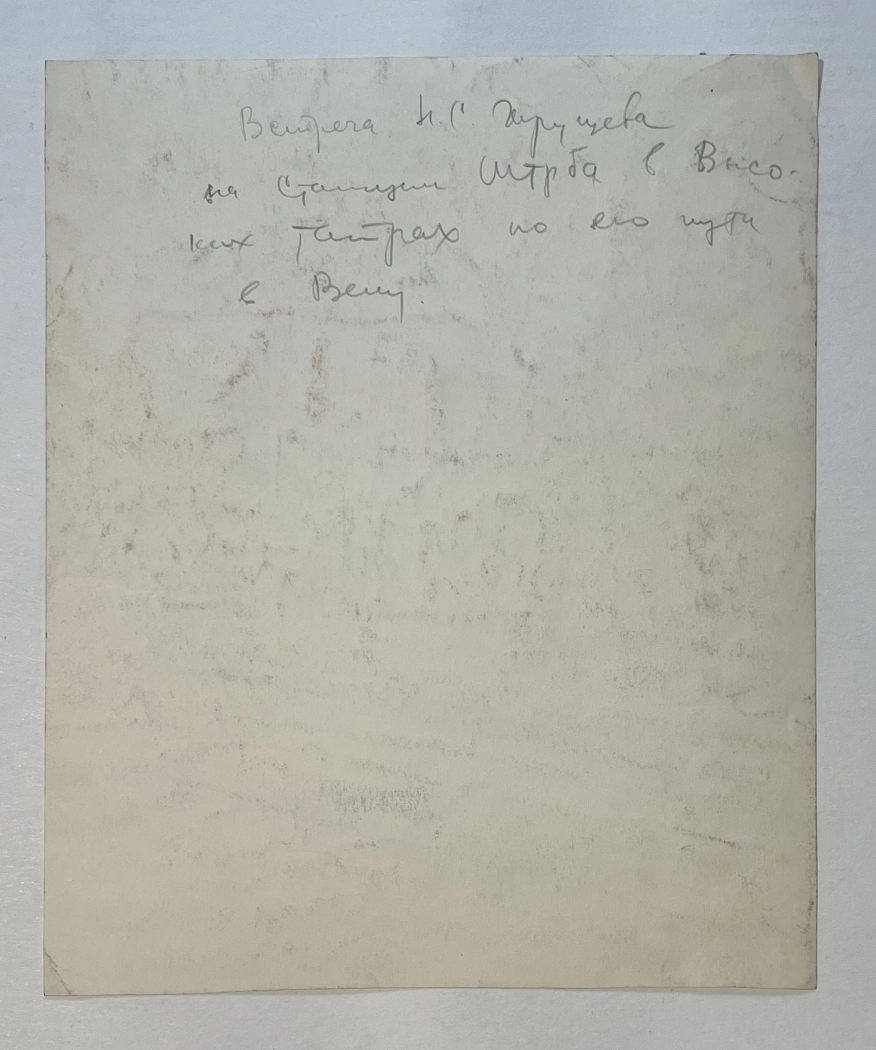 Встреча Н.С. Хрущева
на станции Штрба в Высо-
ких Татрах по его пути
в Вену.